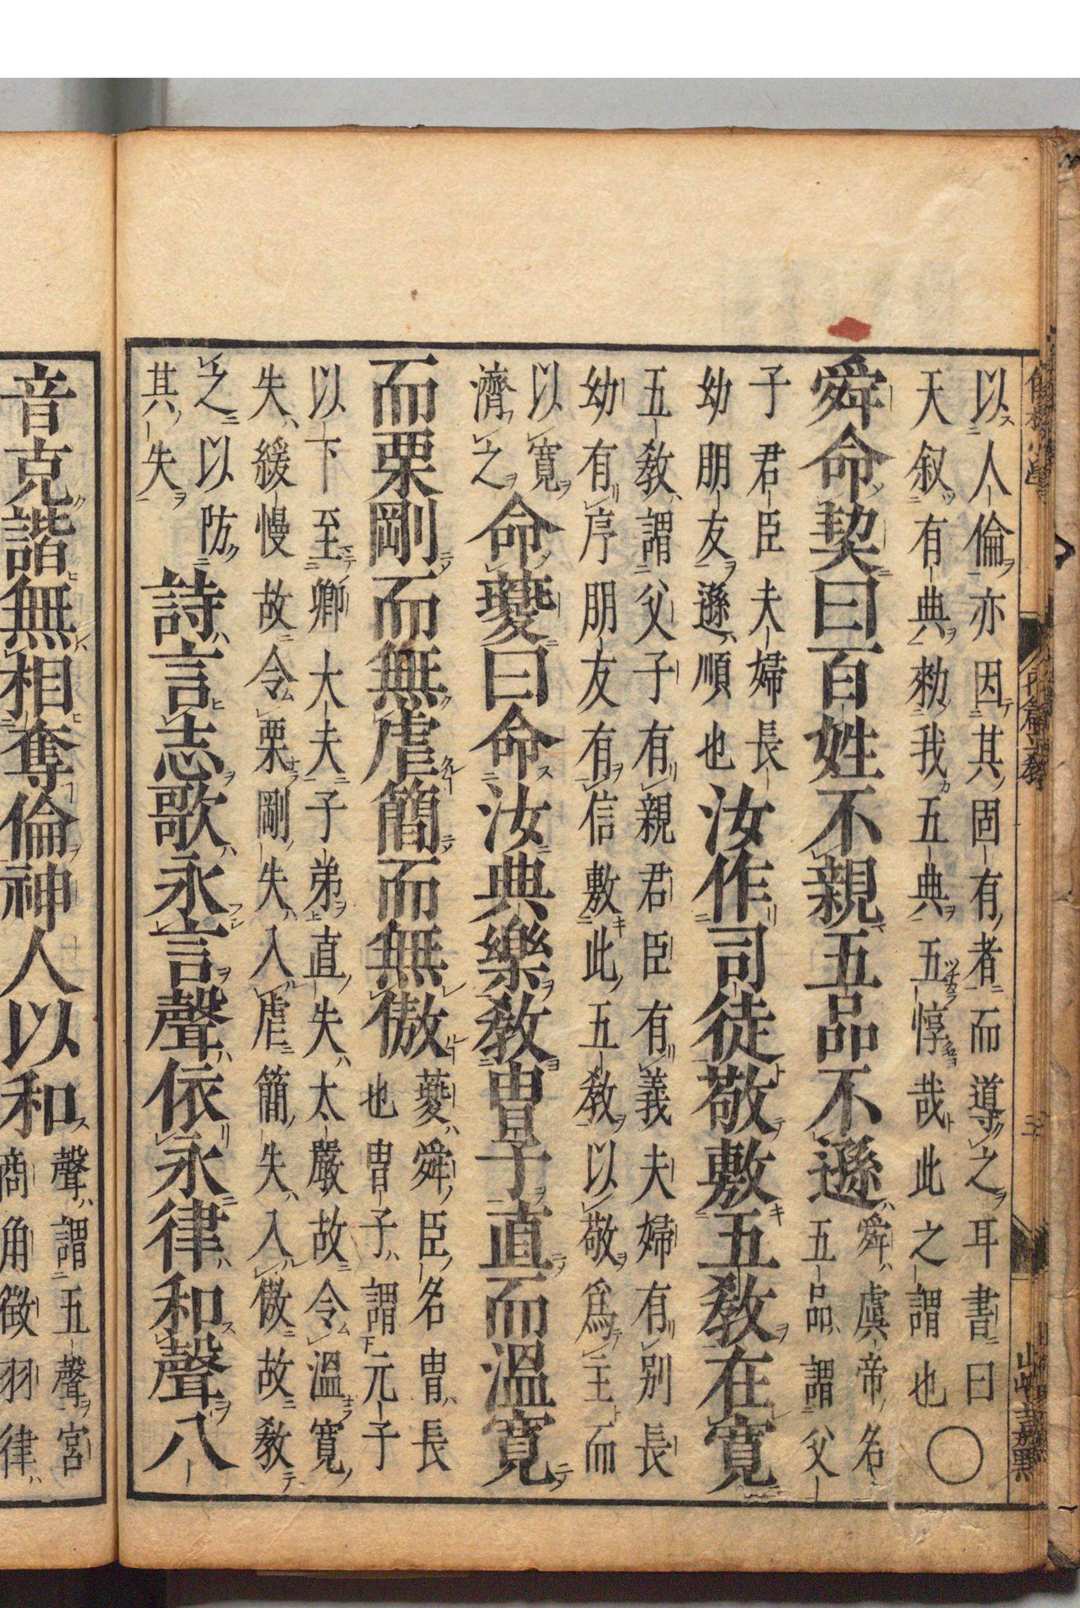 以人倫亦因其固有者而導之耳書曰
天叙有典勑我五典五惇哉此之謂也○
舜命契曰百姓不親五品不遜
舜虞帝名
五品謂父
子君臣夫婦長
幼朋友遜順也
汝作司徒敬敷五教在寬
五教謂父子有親君臣有義夫婦有別長
幼有序朋友有信敷此五教以敬爲主而
以寬
濟之
命夔曰命汝典樂教冑子直而溫寬
而栗剛而無虐簡而無傲
夔舜臣名冑長
也冑子謂元子
以下至卿大夫子弟直失太嚴故令溫寬
失緩慢故令栗剛失入虐簡失入傲故教
之以防
其失
詩言志歌永言聲依永律和聲八
音克諧無相奪倫神人以和
聲謂五聲宮
商角徵羽律